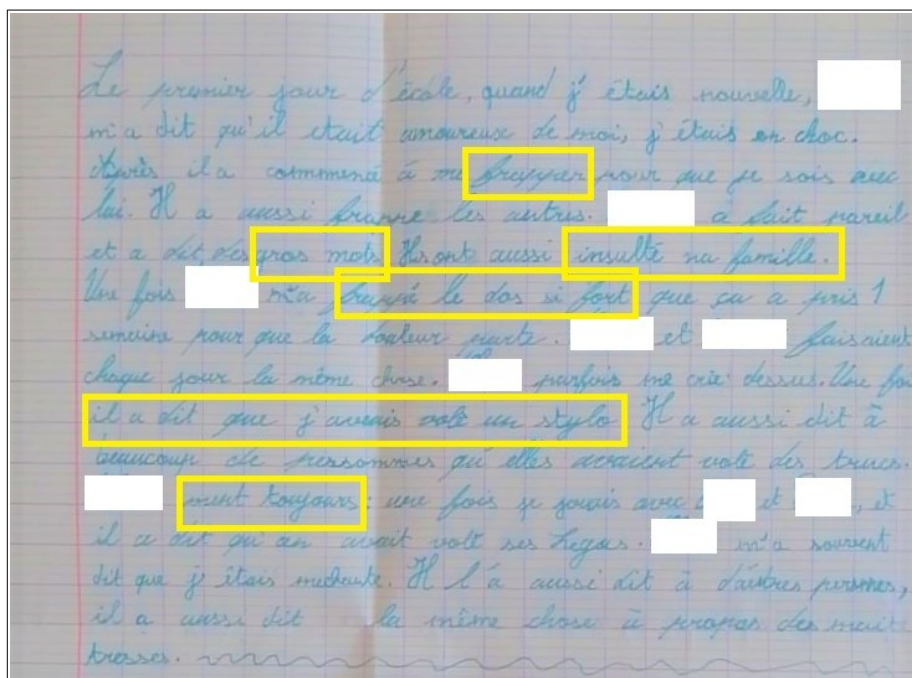 Le premier jour d'école, quand j'étais nouvelle,
m'a dit qu'il etait amoureux de moi, j'étais en choc.
Après il a commencé à me frapper pour que je sois avec
lui. Il a aussi frappé les autres. a fait pareil
et a dit des gros mots Ils ont aussi insulté ma famille.
Une fois m'a frappé le dos si fort que ça a pris 1
semaine pour que la douleur parte. et faisaient
chaque jour la même chose. parfois me crie dessus. Une fois
il a dit que j'avais volé un stylo Il a aussi dit à
beaucoup de personnes qu'elles avaient volé des trucs.
ment toujours : une fois je jouais avec et , et
il a dit qu'on avait volé ses Legos. m'a souvent
dit que j'étais mechante. Il l'a aussi dit à d'autres personnes,
il a aussi dit la même chose à propos des mait
tresses.